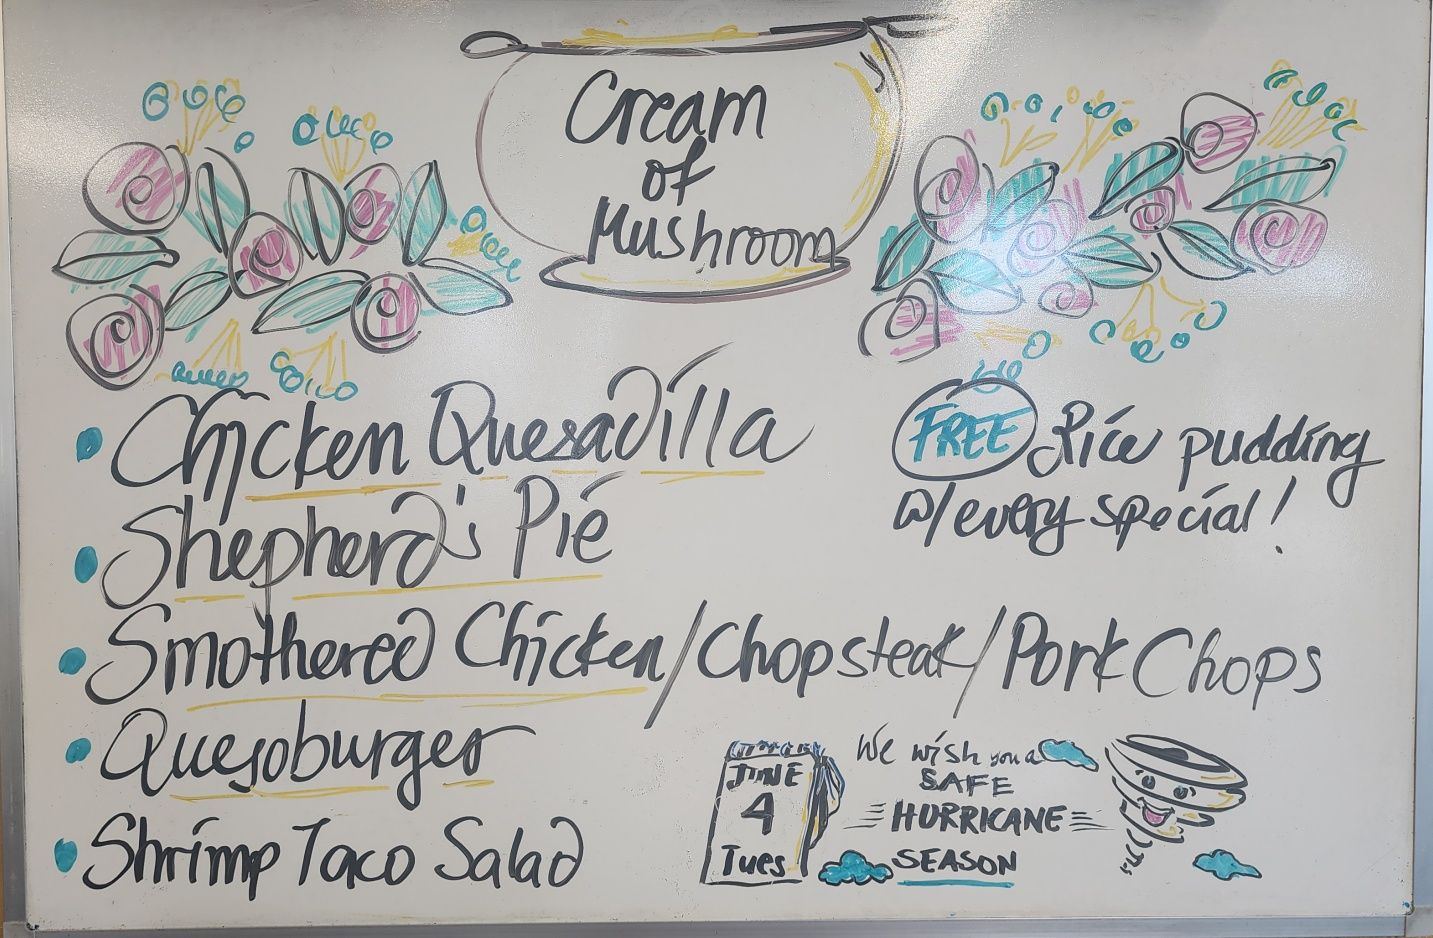 Cream
of
Mushroom
Chicken Quesadilla
Shepherd's Pie
Smothered Chicken/Chopsteak/Pork Chops
Quesoburger
Shrimp Taco Salad
FREE Rice pudding
w/ every special!
JUNE
4
Tues
We wish you a
SAFE
HURRICANE
SEASON